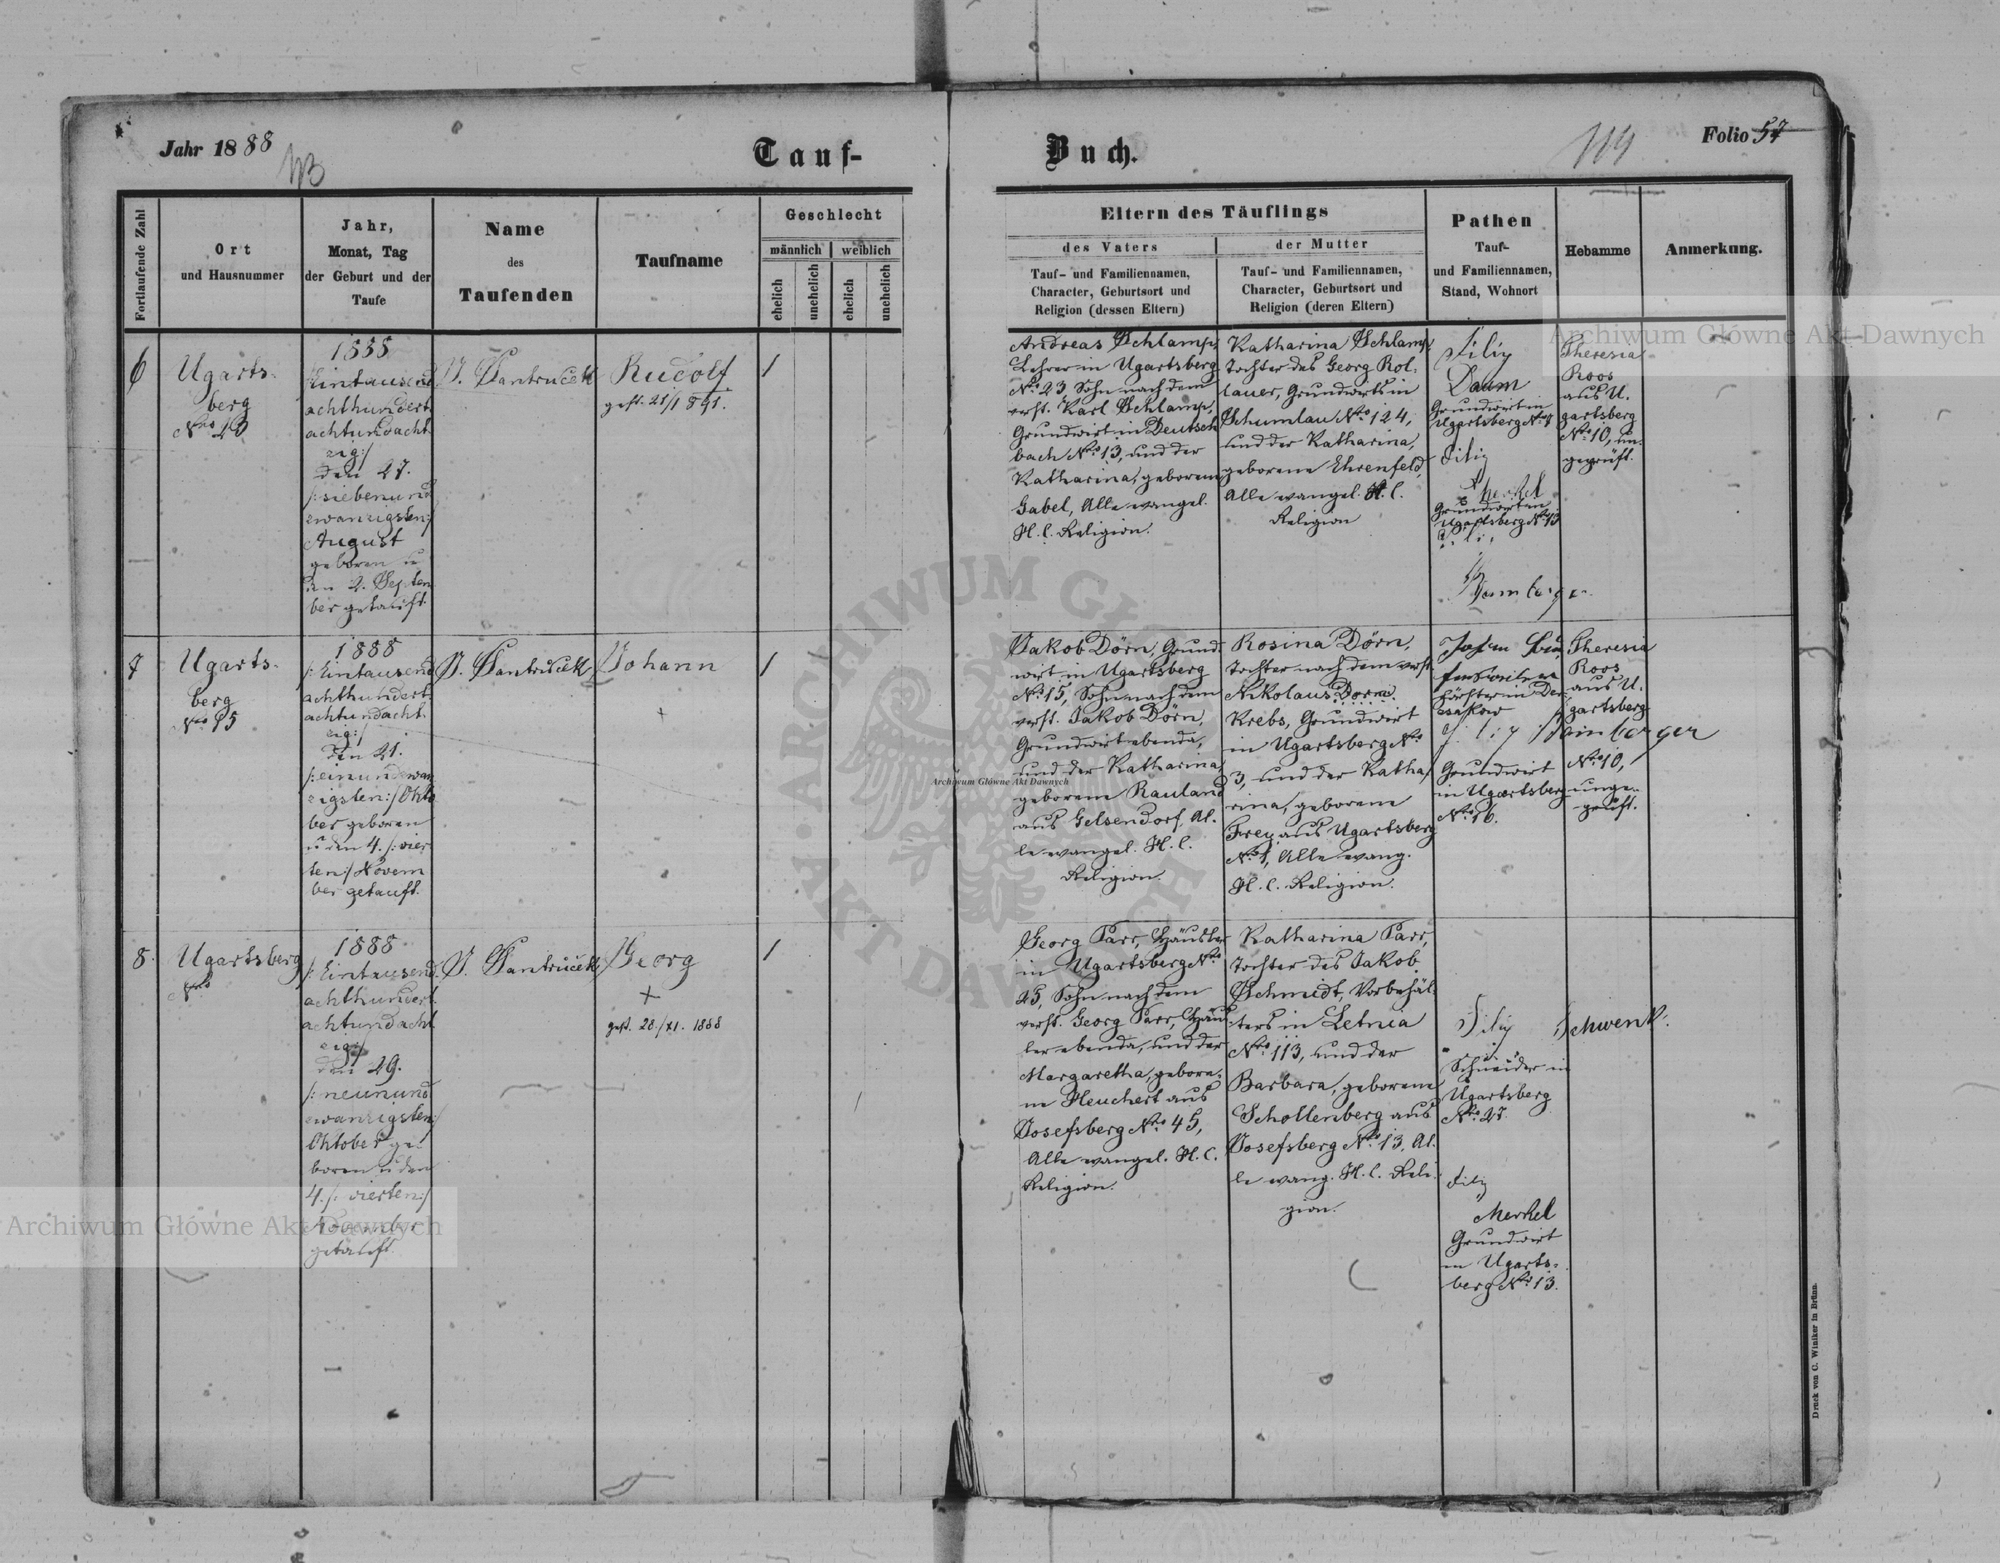 Jahr 1888
113
Tauf-
Buch.
114
Folio 57
Fortlaufende Zahl
Ort
und Hausnummer
Jahr,
Monat, Tag
der Geburt und der
Taufe
Name
des
Taufenden
Taufname
Geschlecht
männlich
weiblich
ehelich
unehelich
ehelich
unehelich
Eltern des Täuflings
des Vaters
Tauf- und Familiennamen,
Character, Geburtsort und
Religion (dessen Eltern)
der Mutter
Tauf- und Familiennamen,
Character, Geburtsort und
Religion (deren Eltern)
Pathen
Tauf-
und Familiennamen,
Stand, Wohnort
Hebamme
Anmerkung.
6
Ugarts-
berg
Nro 23
1888
/:Eintausend
achthundert
achtundacht
zig:/
den 27.
/:siebenund
zwanzigsten:/
August
geboren u
den 2. Septem
ber getauft
J. Jantruček
Rudolf
gest. 21/1 891.
1
Andreas Schlamp,
Lehrer in Ugartsberg
No 23, Sohn nach dem
verst. Karl Schlamp,
Grundwirt in Deutsch
bach No 13, und der
Katharina, geborene
Gabel, Alle evangel.
H. C. Religion.
Katharina Schlamp
Tochter des Georg Kol-
lauer, Grundwirts in
Schumlau No 124,
und der Katharina,
geborene Ehrenfeld,
Alle evangel. H. C.
Religion
Filip
Daum
Grundwirt in
Ugartsberg No
Filip
Merkel
Grundwirt in
Ugartsberg No 13
Bamberger
Theresia
Roos
aus U-
gartsberg
No 10, un-
geprüft.
7
Ugarts-
berg
Nro 15
1888
/:Eintausend
achthundert
achtundacht
zig:/
den 21.
/:einundzwan
zigsten:/ Okto
ber geboren
u den 4. /:vier
ten:/ Novem
ber getauft.
J. Jantruček
Johann
1
Jakob Dörn, Grund-
wirt in Ugartsberg
No 15, Sohn nach dem
verst. Jakob Dörn,
Grundwirt ebenda,
und der Katharina,
geborene Rauland
aus Gelsendorf, Al-
le evangel. H. C.
Religion.
Rosina Dörn,
Tochter nach dem verst.
Nikolaus Dorn
Krebs, Grundwirt
in Ugartsberg No
3, und der Katha-
rina, geborene
Frey aus Ugartsberg
No 1, Alle evang.
H. C. Religion.
Förster in
Filip Bamberger
Grundwirt
in Ugartsberg
No 16.
Theresia
Roos
aus U-
gartsberg
No 10,
unge-
prüft.
8.
Ugartsberg
Nro
1888
/:Eintausend
achthundert
achtundacht
zig:/
den 29.
/:neunund
zwanzigsten:/
Oktober ge-
boren u den
4. /: vierten:/
November
getauft.
J. Jantruček
Georg
+
gest. 28./XI. 1888
1
Georg Parr, Häusler
in Ugartsberg No
25, Sohn nach dem
verst. Georg Parr, Häus
ler ebenda, und der
Margaretha, gebore-
ne Heuchert aus
Josefsberg No 45,
Alle evangel. H. C.
Religion.
Katharina Parr,
Tochter des Jakob
Schmidt, Vorbehäl-
ters in Letnia
No 113, und der
Barbara, geborene
Schollenberg aus
Josefsberg No 13, Al-
le evang. H. C. Reli-
gion.
Filip Schwenk.
Schneider in
Ugartsberg
No 27.
Filip
Merkel
Grundwirt
in Ugarts-
berg No 13.
Druck von C. Winiker in Brünn.
Archiwum Główne Akt Dawnych
Archiwum Główne Akt Dawnych
Archiwum Główne Akt Dawnych